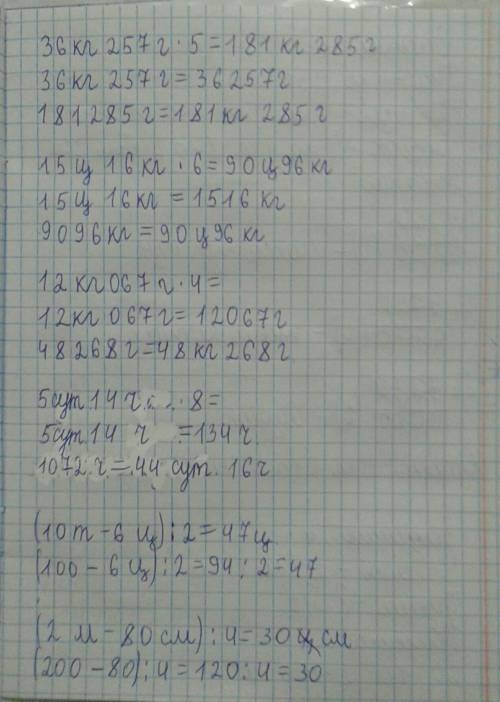 36 кг 257 г · 5 = 181 кг 285 г
36 кг 257 г = 36257 г
181285 г = 181 кг 285 г
15 ц 16 кг · 6 = 90 ц 96 кг
15 ц 16 кг = 1516 кг
9096 кг = 90 ц 96 кг
12 кг 067 г · 4 =
12 кг 067 г = 12067 г
48268 г = 48 кг 268 г
5 сут 14 ч · 8 =
5 сут 14 ч = 134 ч
1072 ч = 44 сут. 16 ч
(10 т - 6 ц) : 2 = 47 ц
(100 - 6 ц) : 2 = 94 : 2 = 47
(2 м - 80 см) : 4 = 30 см
(200 - 80) : 4 = 120 : 4 = 30